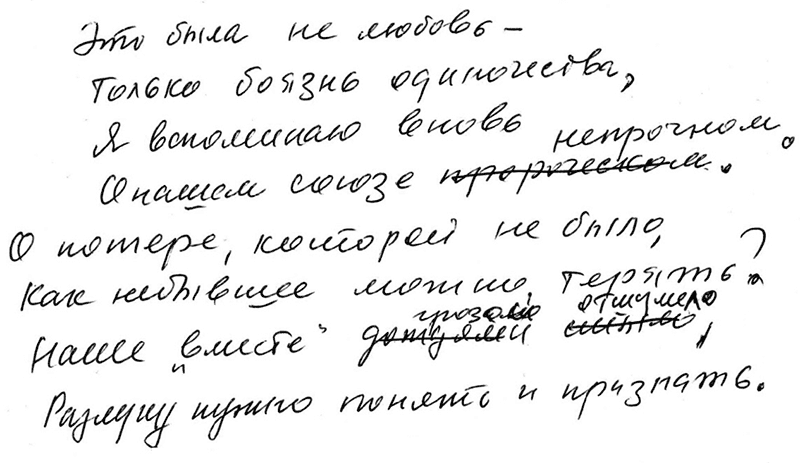 Это была не любовь –
Только боязнь одиночества,
Я вспоминаю вновь
О нашем союзе пророческом. непрочном.
О потере, которой не было,
Как небывшее можно терять?
грозою отшумело
Наше „вместе" дождями смыло,
Разлуку нужно понять и признать.